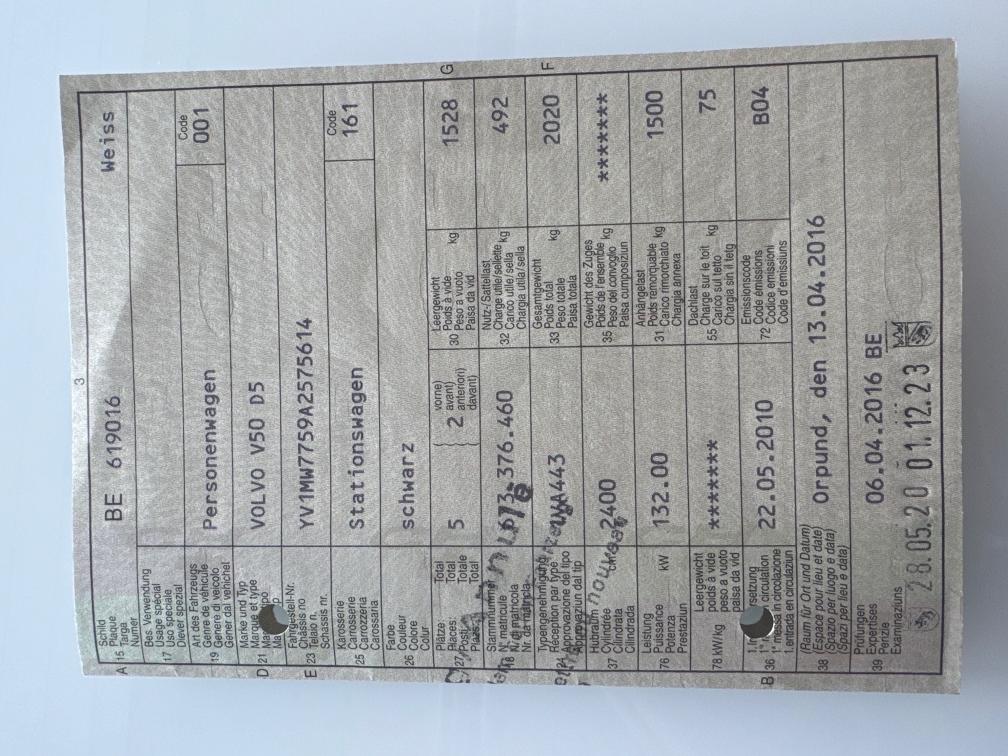 3
Schild
Plaque
A 15 Targa
Numer
BE 619016
Weiss
Bes. Verwendung
Usage spécial
17 Uso speciale
Diever spezial
Art des Fahrzeugs
Genre de véhicule
19 Genere di veicolo
Gener dal vehichel
Personenwagen
Code
001
Marke und Typ
Marque et type
D 21
VOLVO V50 D5
Fahrgestell-Nr.
Châssis no
E 23 Telaio n.
Schassis nr.
YV1MW7759A2575614
Karosserie
Carrosserie
25 Carrozzeria
Carossaria
Stationswagen
Code
161
Farbe
Couleur
26 Colore
Colur
schwarz
Plätze Total
Places: Total
27 Totale
Total
5
2
vorne)
avant)
anteriori)
davant)
Leergewicht
Poids à vide
30 Peso a vuoto kg
Paisa da vid
1528
G
N° matricule
673.376.460
Nutz-/Sattellast
Charge utile/sellette kg
32 Carico utile/sella
Chargia utila/sella
492
Typengenehmigung
Réception par type
24 Approvazione del tipo
Approvaziun dal tip
Gesamtgewicht
Poids total
33 Peso totale kg
Paisa totala
2020
F
Hubraum
Cylindrée
37 Cilindrata
Cilindrada
2400
Gewicht des Zuges
Poids de l'ensemble kg
35 Peso del convoglio
Paisa cumposiziun
*******
Leistung
Puissance
76 Potenza kW
Prestaziun
132.00
Anhängelast
Poids remorquable kg
31 Carico rimorchiato
Chargia annexa
1500
Leergewicht
poids à vide
78 kW/kg peso a vuoto
paisa da vid
*******
Dachlast
Charge sur le toit
55 Carico sul tetto kg
Chargia sin il tetg
75
B 36 1ª messa in circolazione
1.entrada en circulaziun
22.05.2010
Emissionscode
Code émissions
72 Codice emissioni
Code d'emissiuns
B04
(Raum für Ort und Datum)
(Espace pour lieu et date)
38 (Spazio per luogo e data)
(Spazi per lieu e data)
Orpund, den 13.04.2016
Prüfungen
Expertises
39 Perizie
Examinaziuns
06.04.2016 BE
28.05.20 01.12.23